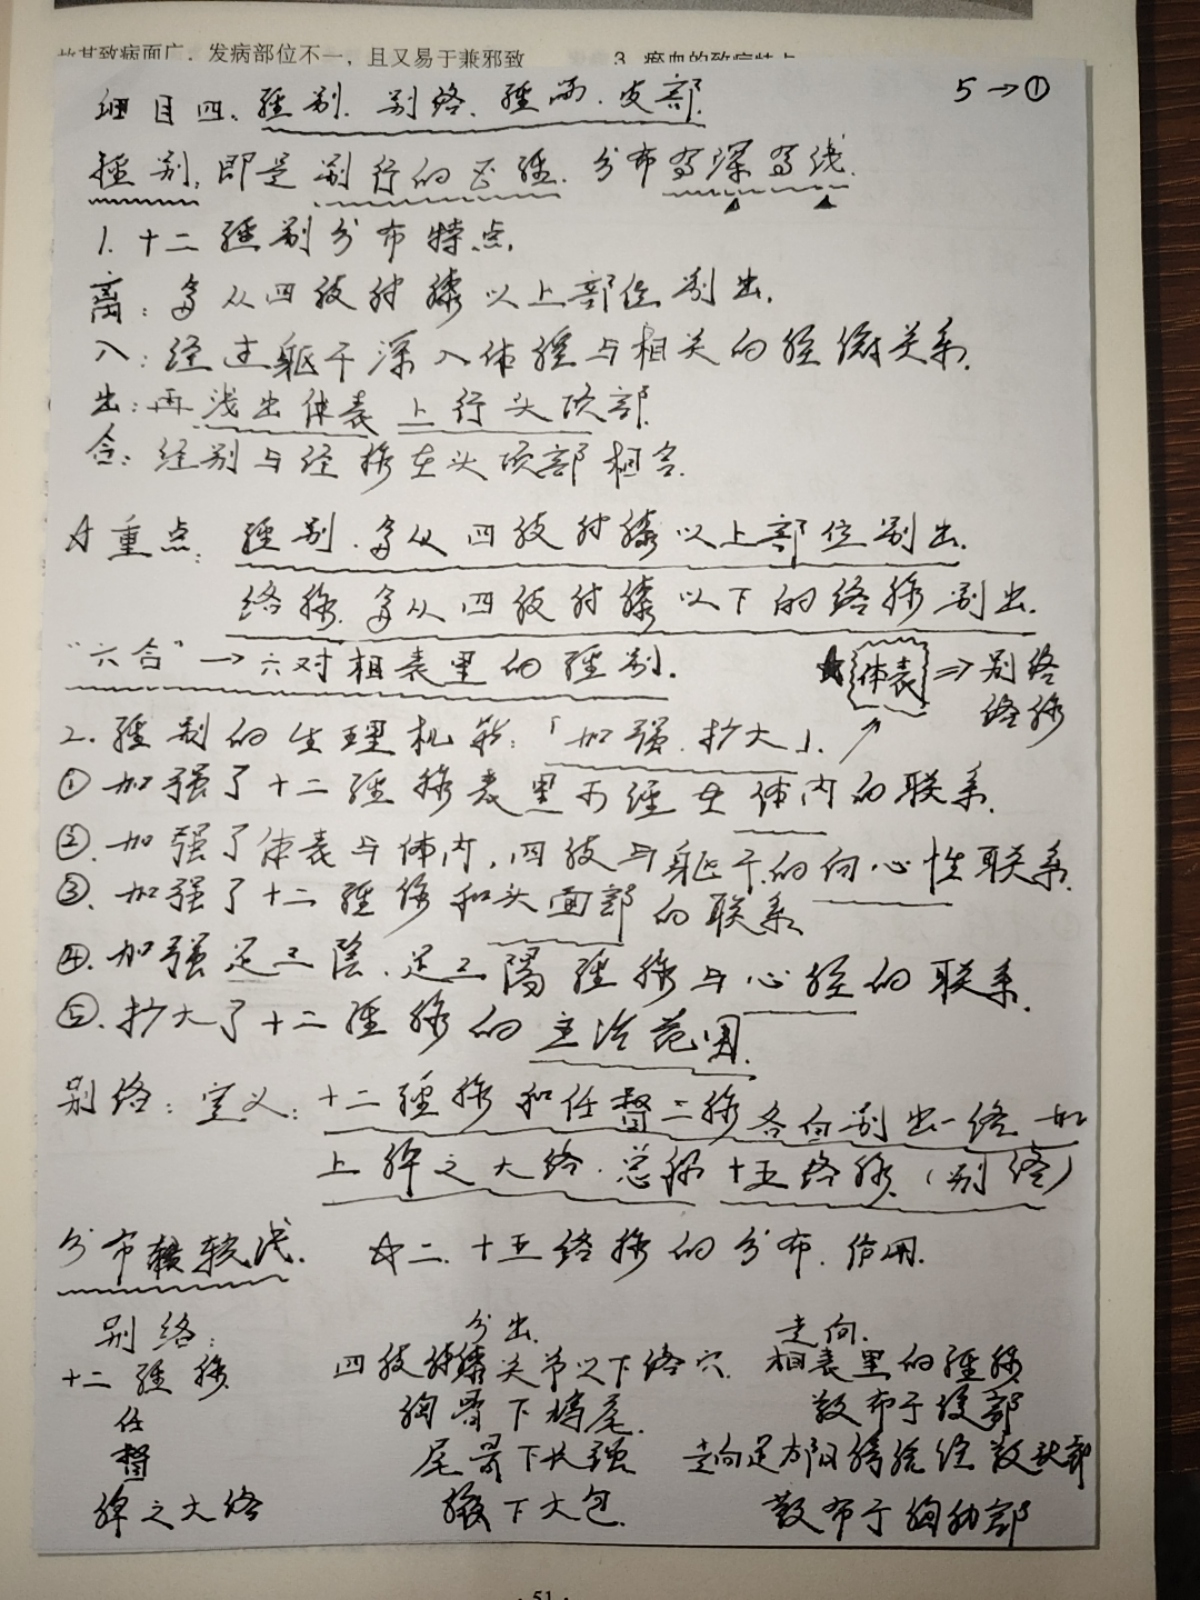 故其致病面广,发病部位不一,且又易于兼邪致
3. 瘀血的致病特点
5→①
细目四、經别、别络、經筋、皮部.
經别,即是别行的正經.分布有深有浅.
1.十二經别分布特点.
离:多从四肢肘膝以上部位别出.
入:经过躯干深入体腔与相关的脏腑关系.
出:再浅出体表上行头项部.
合:经别与经脉在头项部相合.
☆重点:經别.多从四肢肘膝以上部位别出.
络脉.多从四肢肘膝以下的络脉别出.
“六合”→六对相表里的經别.
★体表⇒别络
络脉
2.經别的生理机能:「加强.扩大」.
①加强了十二經脉表里两经在体内的联系.
②.加强了体表与体内,四肢与躯干的向心性联系.
③.加强了十二經脉和头面部的联系
④.加强足三陰.足三陽經脉与心经的联系.
⑤.扩大了十二經脉的主治范围.
别络:定义:十二經脉和任督二脉各自别出一络 加
上脾之大络.总称十五络脉.(别络)
分布较浅. ☆二.十五络脉的分布.作用.
别络: 分出. 走向.
十二經脉 四肢肘膝关节以下络穴. 相表里的經脉
任 胸骨下鳩尾. 散布于腹部
督 尾骨下长强 走向足太阳膀胱经 散头部
脾之大络 腋下大包. 散布于胸胁部
· 51 ·